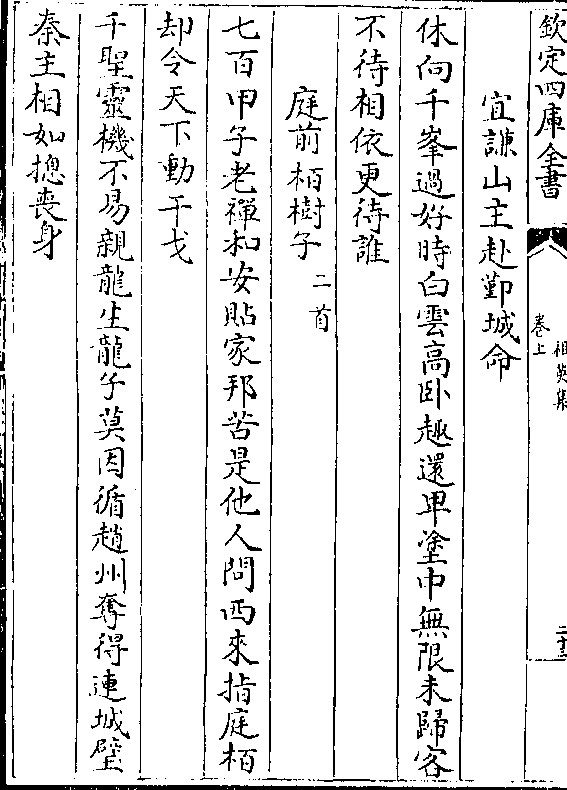 欽定四庫全書
祖英集
卷上
二十三
宜謙山主赴鄞城命
休向千峯過好時白雲高卧趣還卑塗中無限未歸客
不待相依更待誰
庭前栢樹子二首
七百甲子老禪和安貼家邦苦是他人問西來指庭栢
却令天下動干戈
千聖靈機不易親龍生龍子莫因循趙州奪得連城璧
秦主相如摠喪身